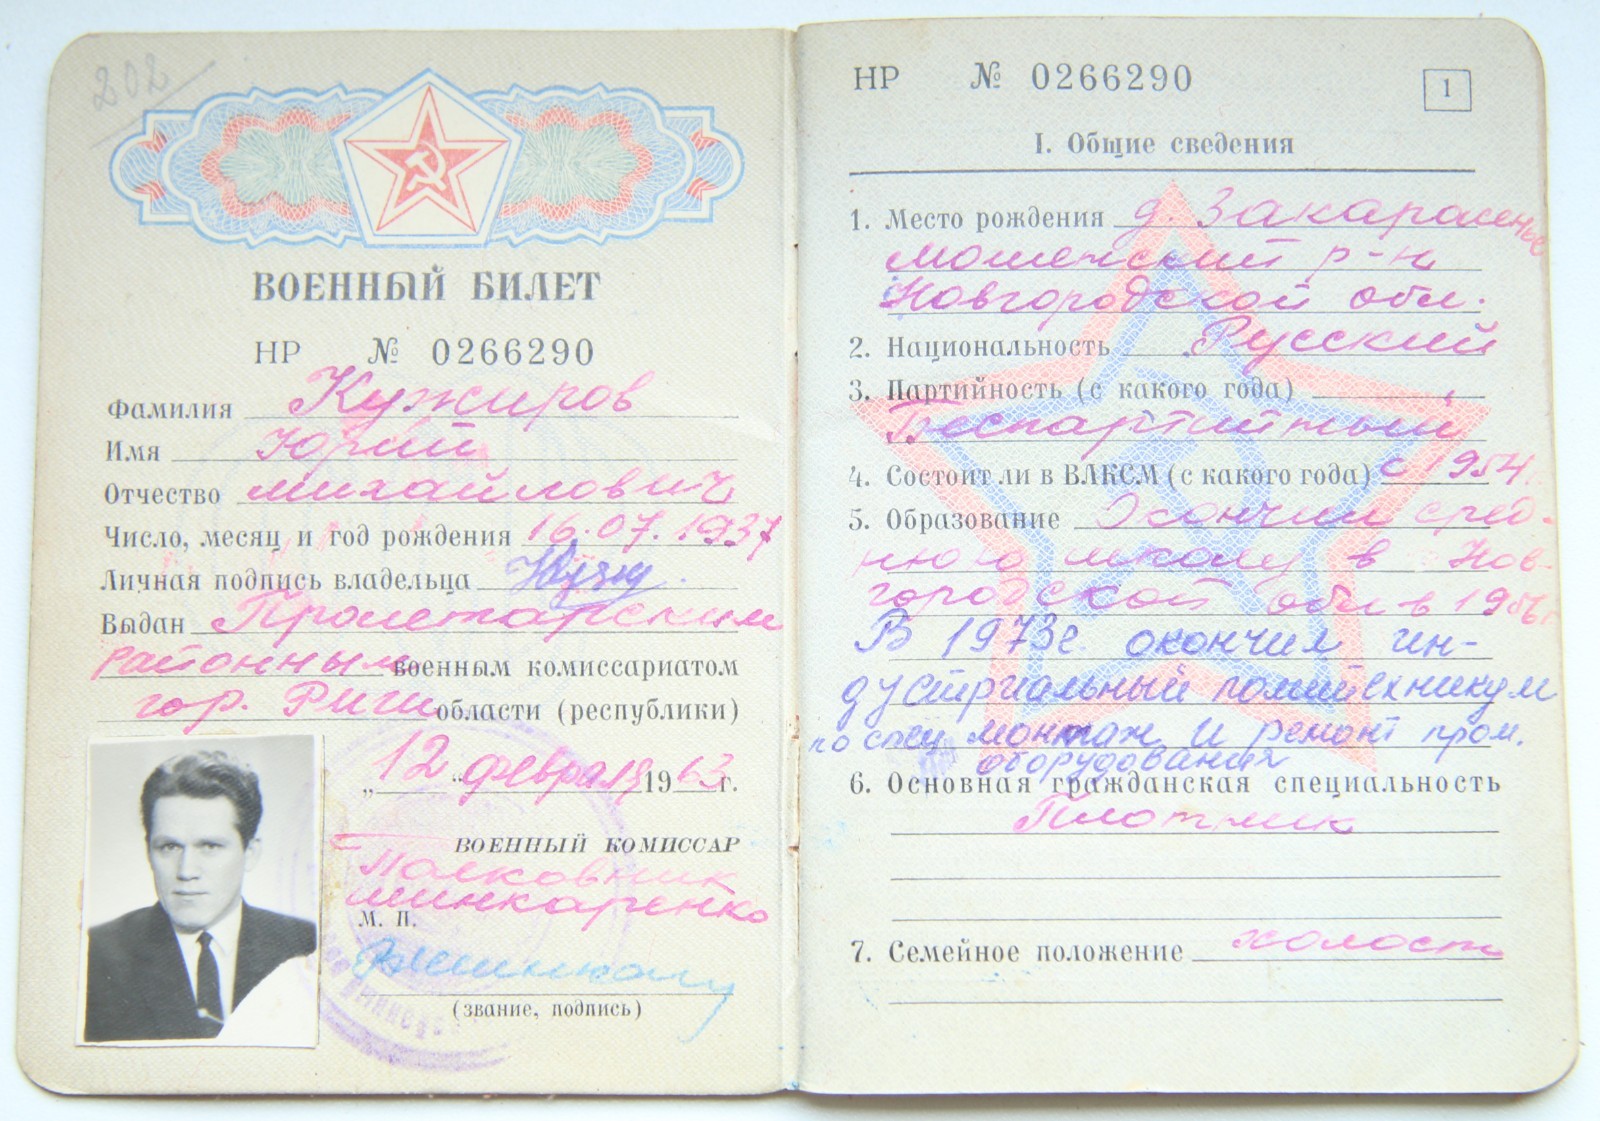 202
ВОЕННЫЙ БИЛЕТ
НР № 0266290
Фамилия Кужиров
Имя Юрий
Отчество Михайлович
Число, месяц и год рождения 16.07.1937
Личная подпись владельца
Выдан Пролетарским
районным военным комиссариатом
гор. Риги области (республики)
„12" февраля 1963 г.
ВОЕННЫЙ КОМИССАР
Полковник
Минкаренко
М. П.
(звание, подпись)
НР № 0266290
1
I. Общие сведения
1. Место рождения д.
р-н
Новгородской обл.
2. Национальность Русский
3. Партийность (с какого года)
Беспартийный
4. Состоит ли в ВЛКСМ (с какого года) с 1954г.
5. Образование Окончил сред-
нюю школу в Нов-
городской обл в 1956г
В 1973г. окончил ин-
дустриальный политехникум
по спец монтаж и ремонт пром.
оборудования
6. Основная гражданская специальность
Плотник
7. Семейное положение холост